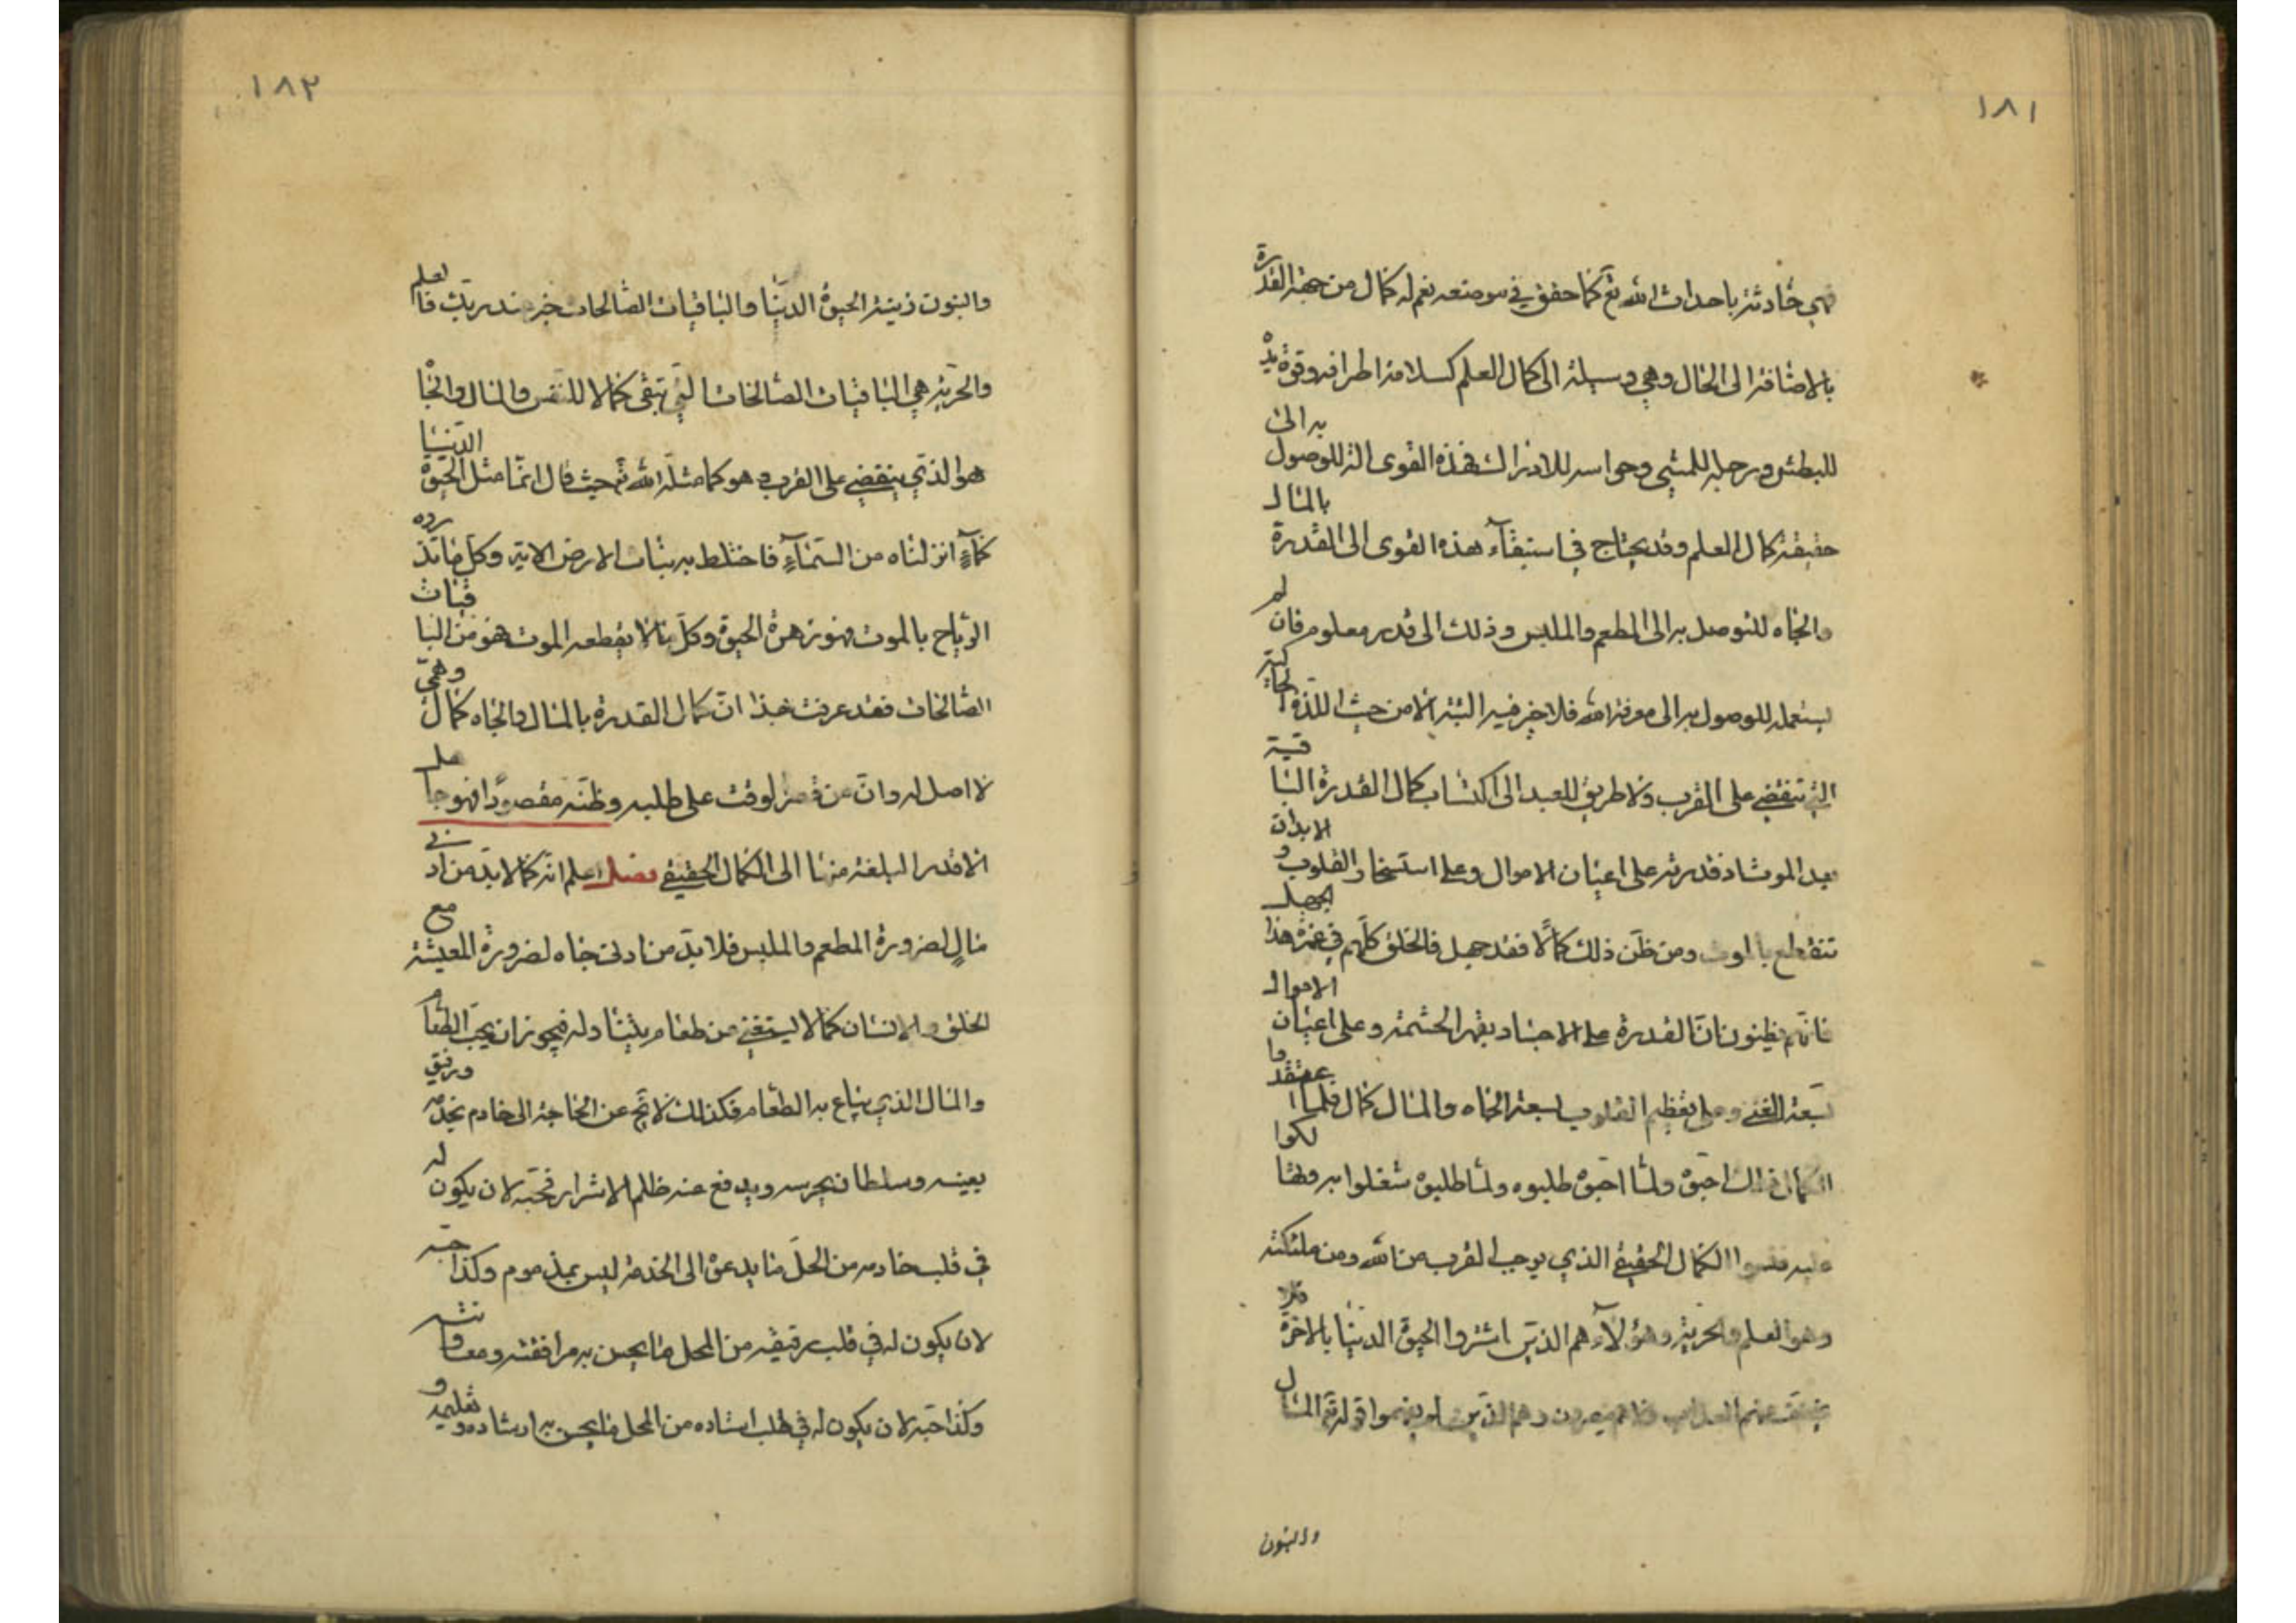 ١٨١
فهي حادثة باحداث الله تع كما حقق في موضعه نعم له كمال من جهة القدرة
بالاضافة الى الحال وهي وسيلة الى كمال العلم كسلامة اطرافه وقوة يد
للبطش ورجله للمشي وحواسه للادراك فهذه القوى الة للوصول به الى
حقيقة كمال العلم وقد يحتاج في استبقآء هذه القوى الى القدرة بالمال
والجاه للتوصل به الى المطعم والملبس وذلك الى قدر معلوم فان لم
يستعمله للوصول به الى معرفة الله فلا خير فيه البتة الا من حيث اللذة الحالية
التي تنقضي على القرب ولا طريق للعبد الى اكتساب كمال القدرة الباقية
بعد الموت اذ قدرته على اعيان الاموال وعلى استسخار القلوب و الابدان
تنقطع بالموت ومن ظن ذلك كمالا فقد جهل فالخلق كلهم في غمرة هذا الجهل
فانهم يظنون ان القدرة على الاجساد بقهر الحشمة وعلى اعيان الاموال
بسعة الغنى وعلى تعظيم القلوب بسعة الجاه والمال كمال فلما اعتقدوا
الكمال ذلك احبوه ولما احبوه طلبوه ولما طلبوه شغلوا به وتهالكوا
عليه فنسوا الكمال الحقيقي الذي يوجب القرب من الله ومن ملئكته
وهو العلم والحرية وهؤلآء هم الذين اشتروا الحيوة الدنيا بالاخرة فلا
يخفف عنهم العذاب ولا هم ينصرون وهم الذين لم يفهموا قوله تع المال
والبنون
١٨٢
والبنون زينة الحيوة الدنيا والباقيات الصالحات خير عند ربك فالعلم
والحرية هي الباقيات الصالحات التي تبقى كمالا للنفس والمال والجا
هو الذي ينقضي على القرب وهو كما مثله الله تع حيث قال انما مثل الحيوة الدنيا
كمآء انزلناه من السمآء فاختلط به نبات الارض الاية وكل ما تذروه
الرياح بالموت فهو زهرة الحيوة وكل ما لا يقطعه الموت فهو من الباقيات
الصالحات فقد عرفت بهذا ان كمال القدرة بالمال والجاه كمال وهمي
لا اصل له وان من قصر الوقت على طلبه وظنه مقصودا فهو جاهل
الا قدر البلغة منها الى الكمال الحقيقي فصل اعلم انه كما لا بد من ادنى
مال لضرورة المطعم والملبس فلا بد من ادنى جاه لضرورة المعيشة مع
الخلق والانسان كما لا يستغني من طعام يتناوله فيجوز ان يحب الطعام
والمال الذي يبتاع به الطعام فكذلك لا يخ عن الحاجة الى خادم يخدمه ورفيق
يعينه وسلطان يحرسه ويدفع عنه ظلم الاشرار فحبه لان يكون له
في قلب خادمه من المحل ما يدعوه الى الخدمة ليس بمذموم وكذا حبه
لان يكون له في قلب رفيقه من المحل ما يحسن به مرافقته ومعاونته
وكذا حبه لان يكون له في قلب استاده من المحل ما يحسن به ارشاده و تعليمه